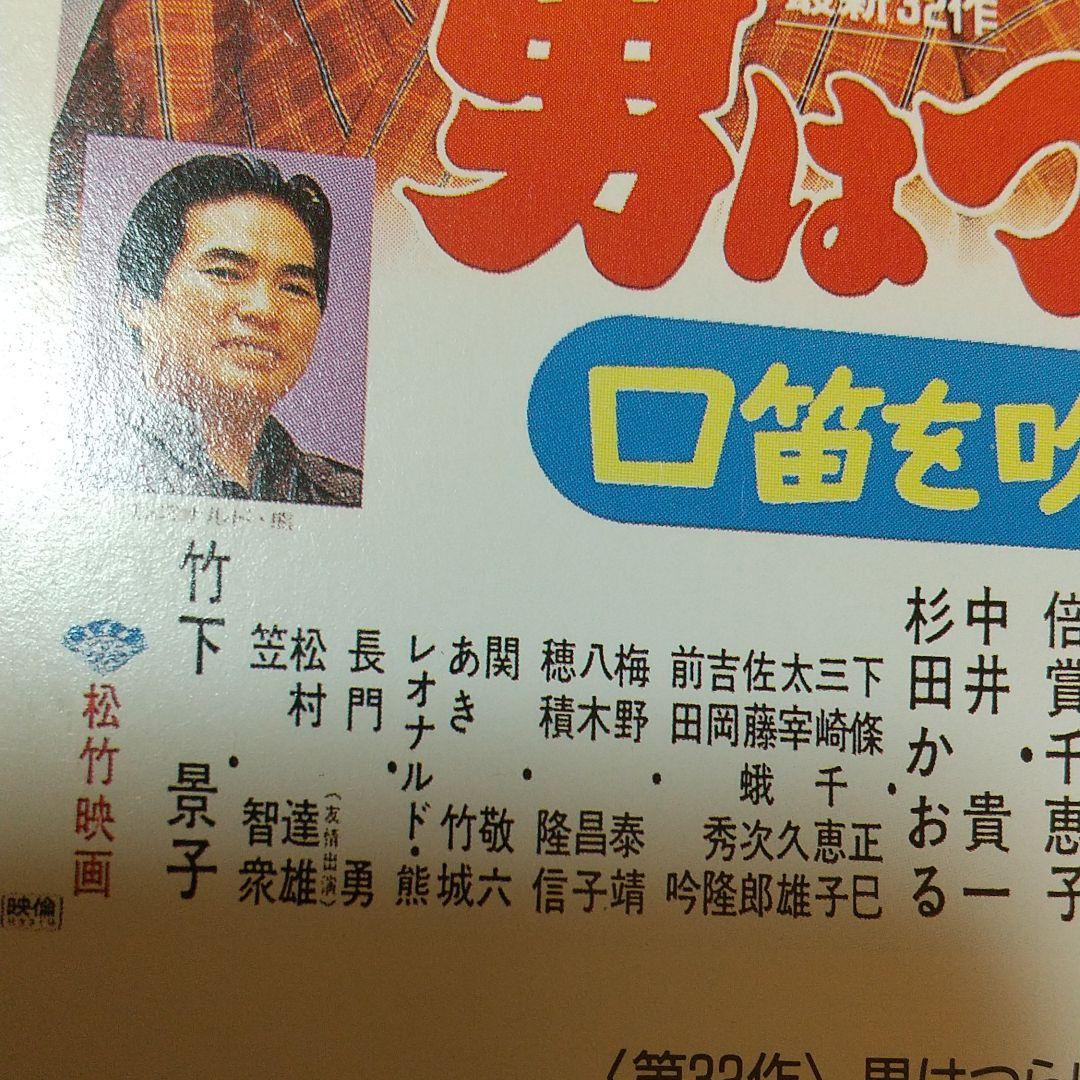 最新32作
男はつ
口笛を吹
レオナルド・熊
倍賞千恵子
中井貴一
杉田かおる
下條正巳
三崎千恵子
太宰久雄
佐藤蛾次郎
吉岡秀隆
前田吟
梅野泰靖
八木昌子
穂積隆信
関敬六
あき竹城
レオナルド・熊
長門勇
松村達雄(友情出演)
笠智衆
竹下景子
松竹映画
映倫
〈第32作〉男はつら